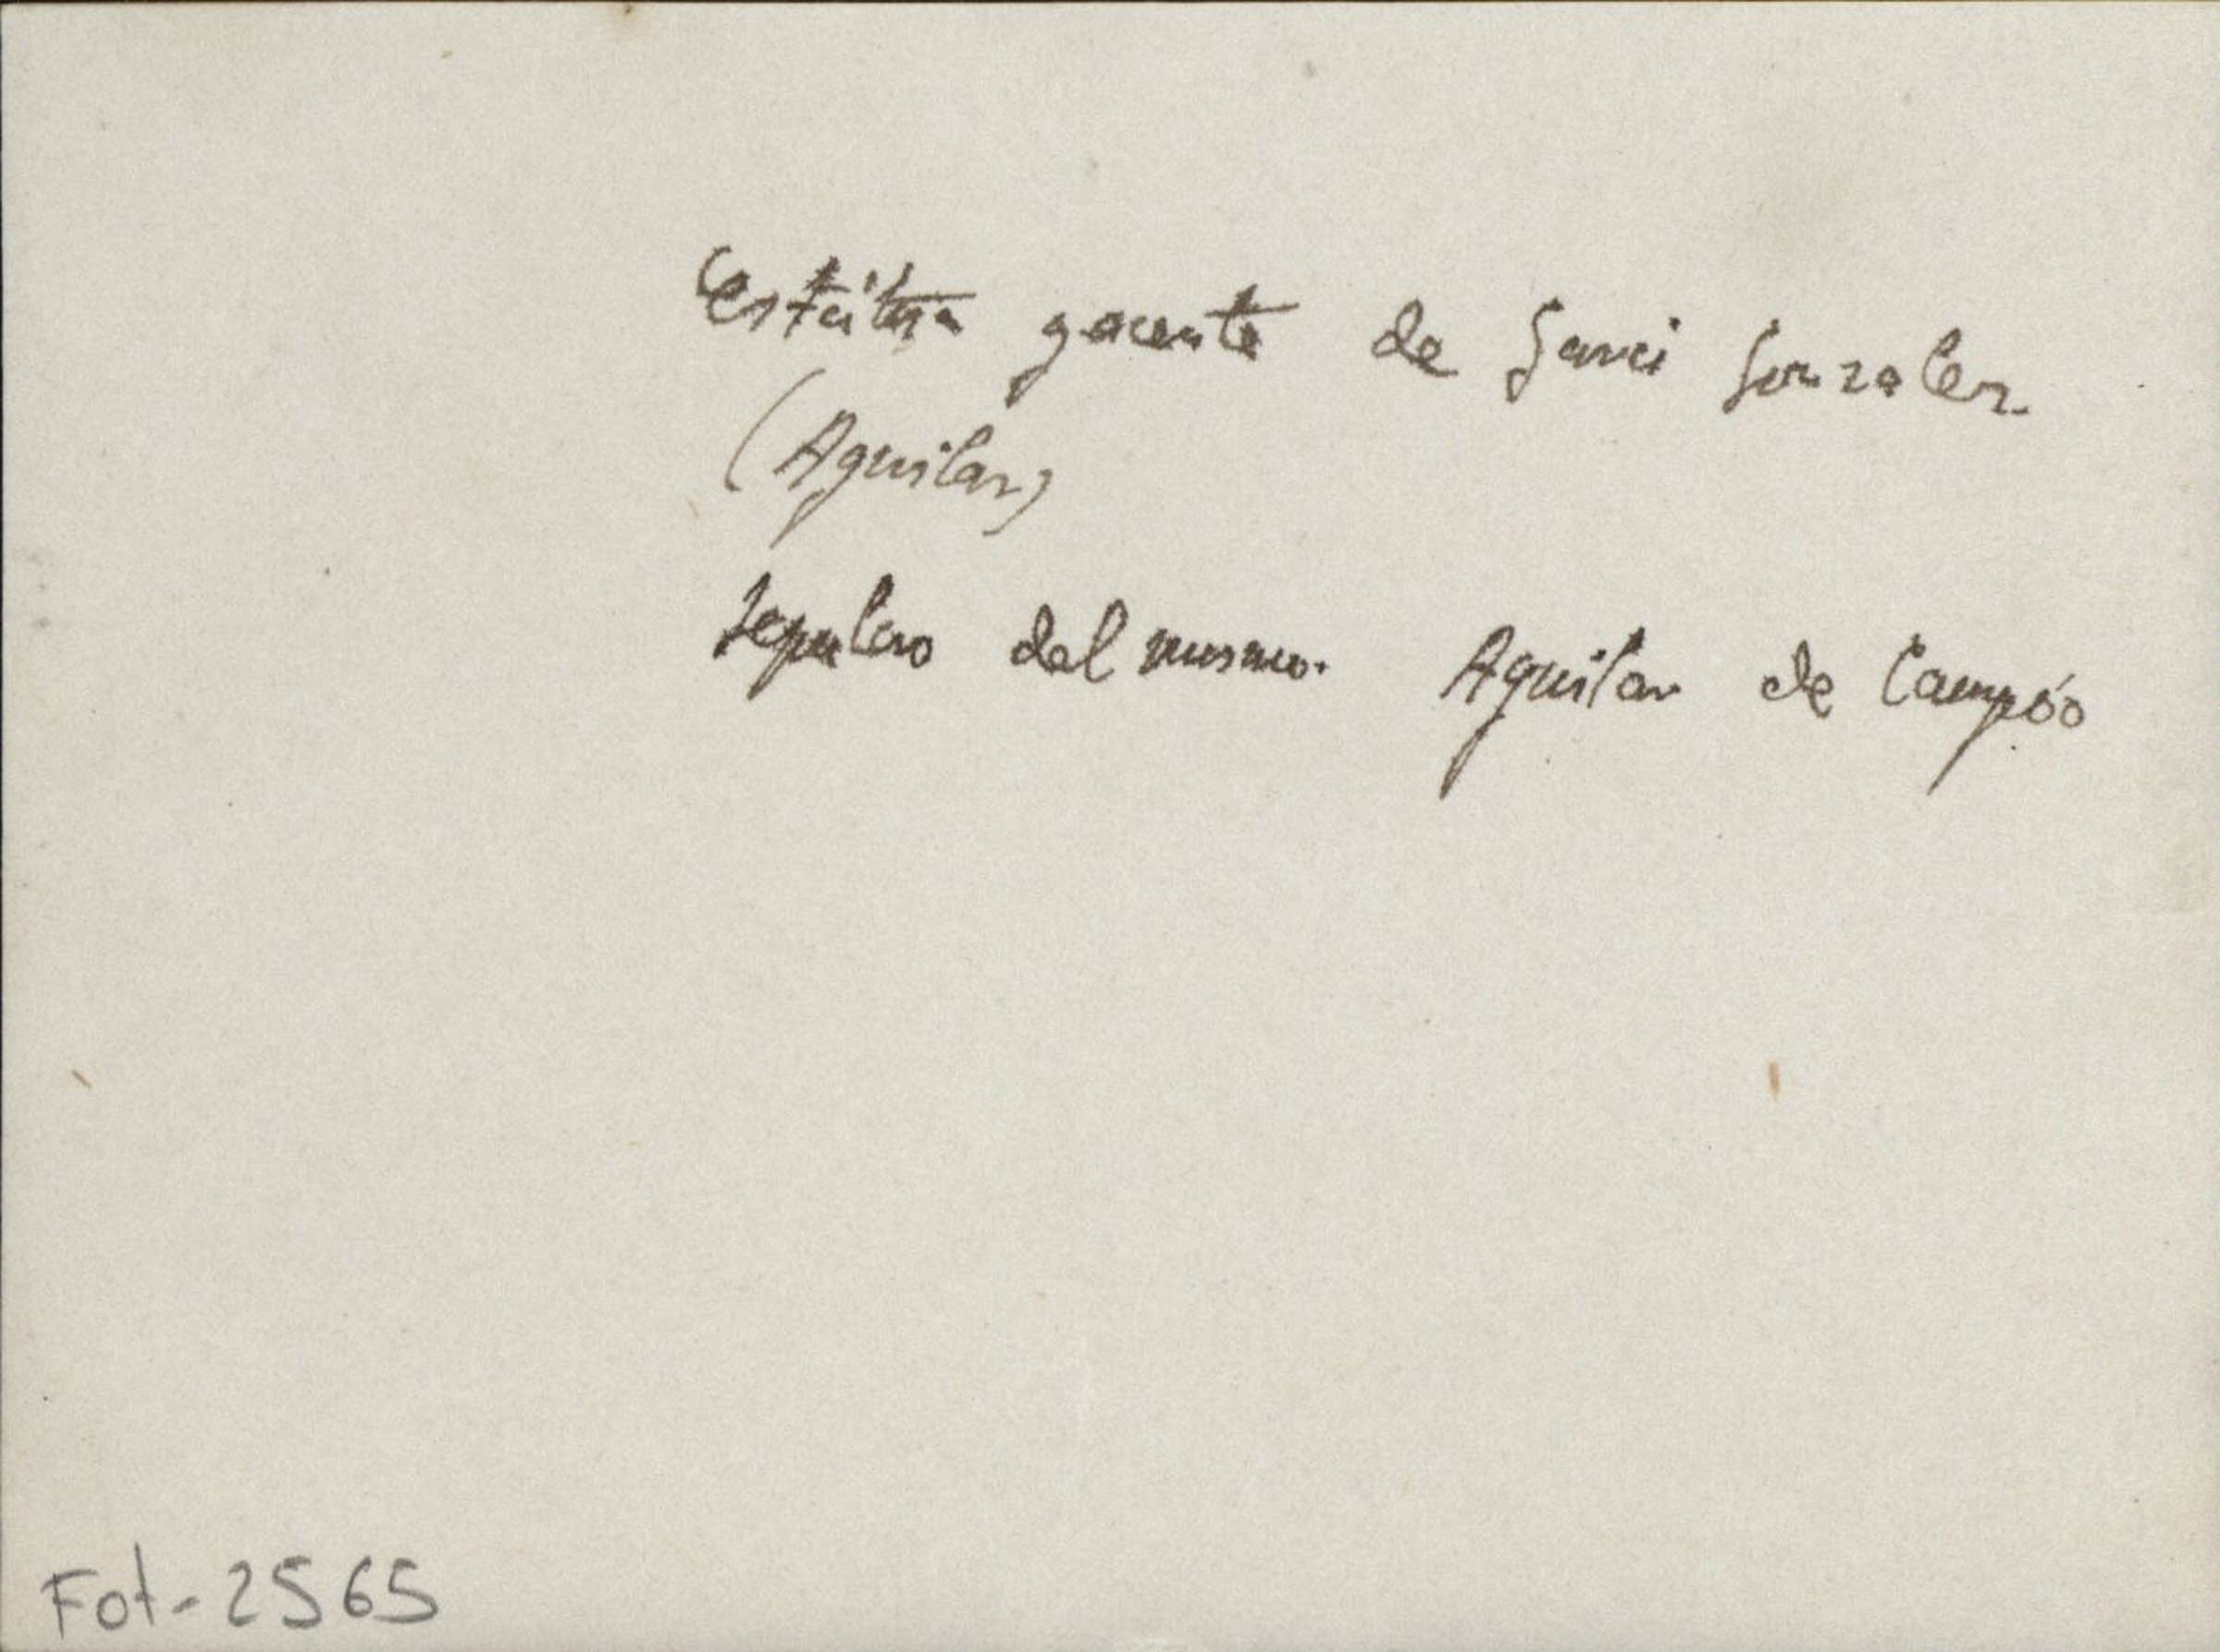 Estátua yacente de Garci Gonzalez
(Aguilar)
Sepulcro del mismo. Aguilar de Campóo
Fot-2565